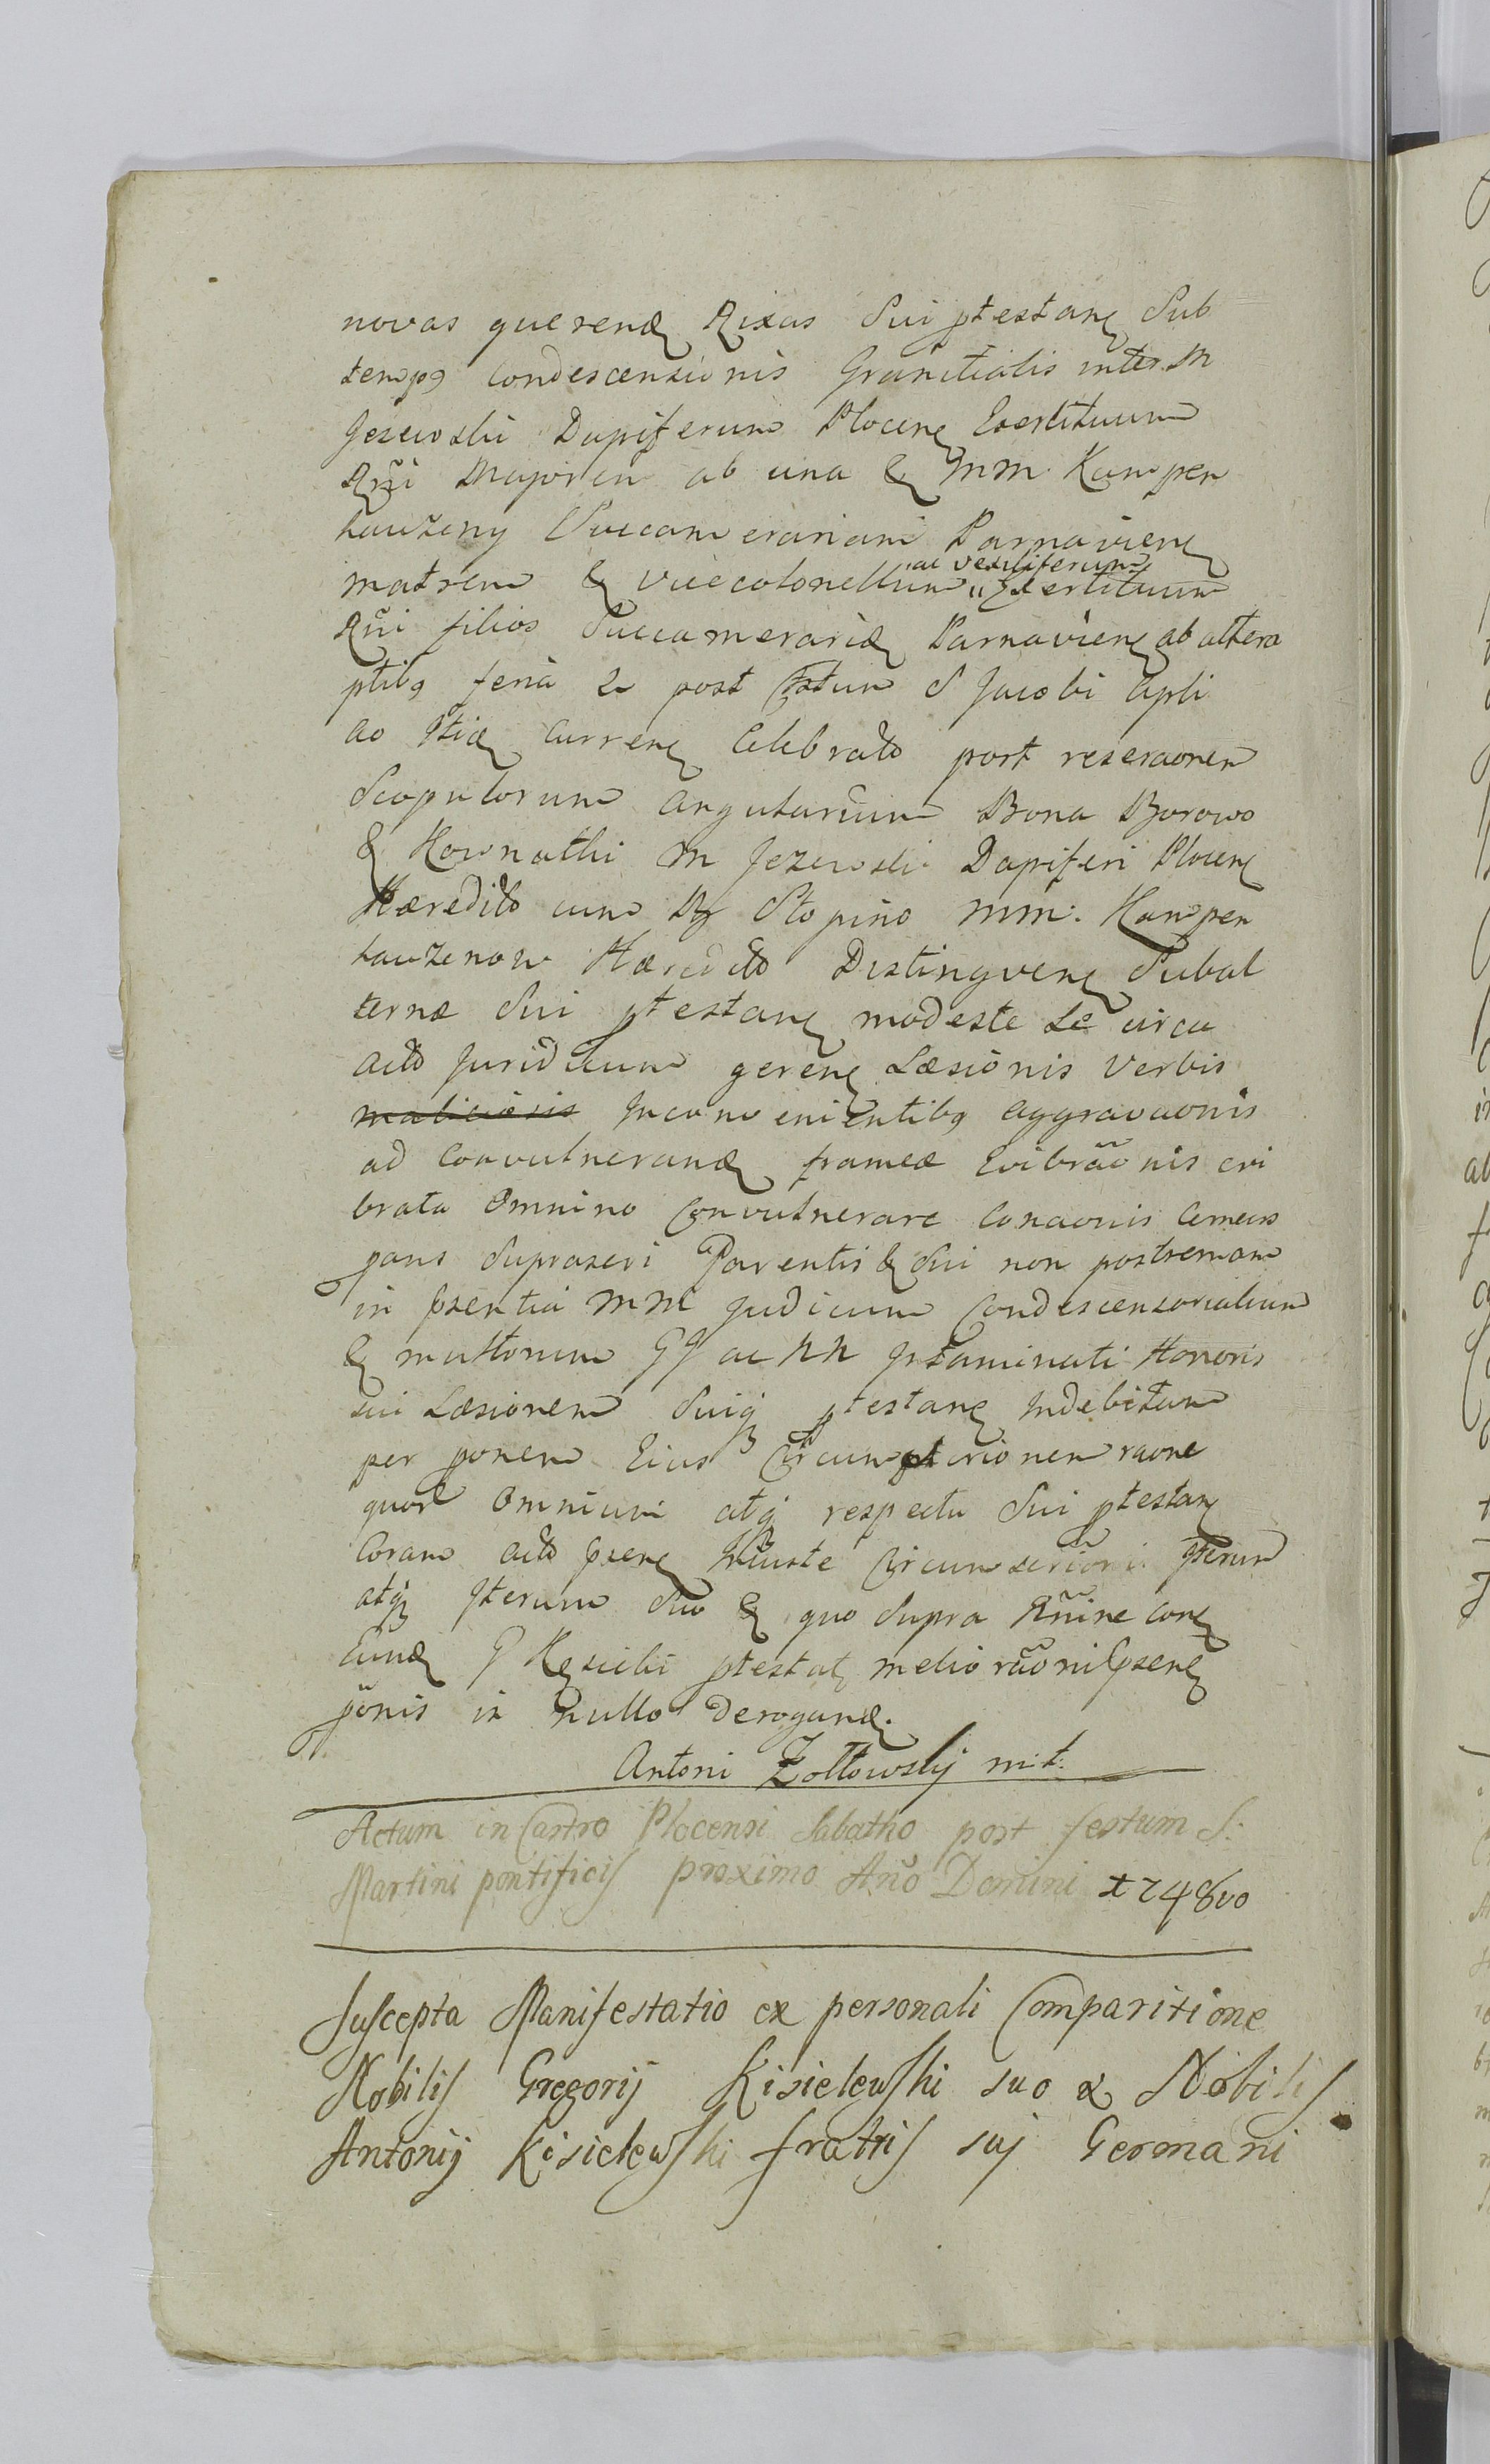 novas querend Rixas Sui ptestan Sub
temp9 Condescensionis Granitialis inter M
Jezewski Dapiferum Plocen Exercituum
Rñi Majorem ab una & MM Kampen
hauzeny Succamerariam Parnavien
matrem & vicecolonellum ac vexiliferum Exercituum
Rñi filios Succamerariæ Parnavien ab altera
ptib9 feria 2 post festum S Jacobi Apli
ao curren Celebrato post reseraonem
Scopulorum angularium Bona Borowo
& Kownathi M Jezewski Dapiferi Plocen
Hæredit cum Stopino MM: Kampen
hauzenow Hæredit Distingven Subal
ternæ Sui ptestan modeste se circa
actũ Juridicum geren Læsionis Verbis
maliciosis Inconvenientib9 aggravaonis
ad Convulnerand frameæ Evibrãonis evi
brata Omnino Convulnerare Conaonis
Suprascri Parentis & Sui non postremam
in psentia MM Judicum Condescensorialium
& multorum GG ac NN Honoris
sui Læsionem Suiq ptestan Indebitam
per ponem Eius raone
quor Omnium atq respectu Sui ptestan
Coram acto psen Iniuste Iterum
atq Iterum Suo & quo Supra Rñine
Eund G ptestat meliorãoni psen
ponis in nullo derogand.
Antoni Żołtowsky mt:
Actum in Castro Plocensi Sabatho post festum S:
Martini pontificis proximo Año Domini 1748vo
Suscepta Manifestatio ex personali Comparitione
Nobilis Gregorij Kisielewski suo & Nobilis
Antonij Kisielewski fratris suj Germani